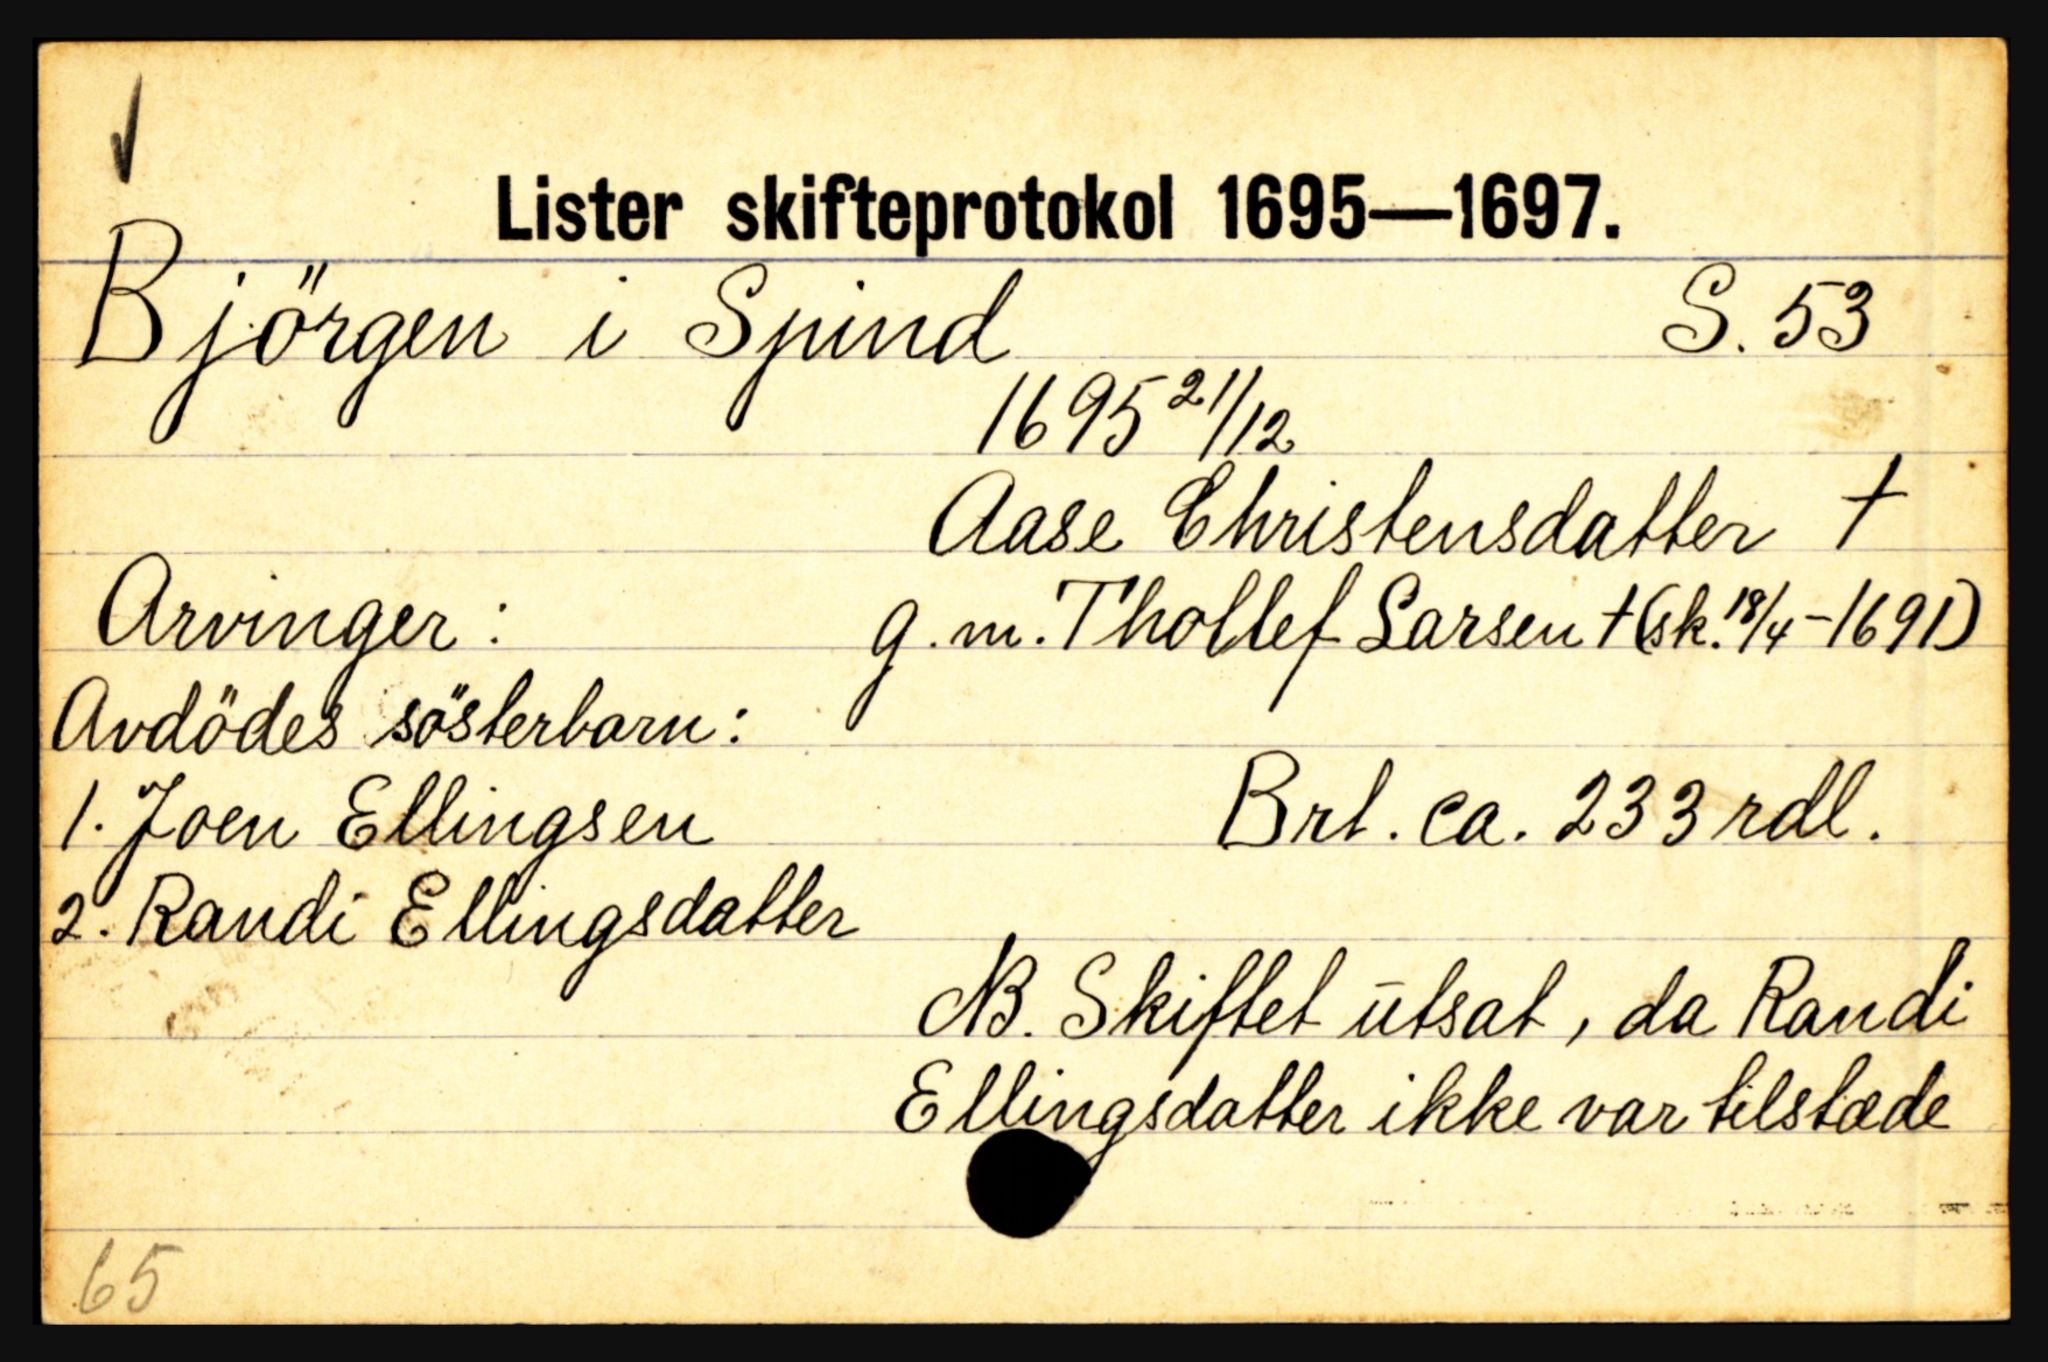 Lister skifteprotokol 1695—1697.
Björgen i Spind S. 53
1695 21/12
Aase Christensdatter †
Arvinger: g.m. Thollef Larsen † (sk. 18/4-1691)
Avdödes sösterbarn:
1. Joen Ellingsen Brt. ca. 233 rdl.
2. Randi Ellingsdatter
NB. Skiftet utsat, da Randi
Ellingsdatter ikke var tilstæde
65